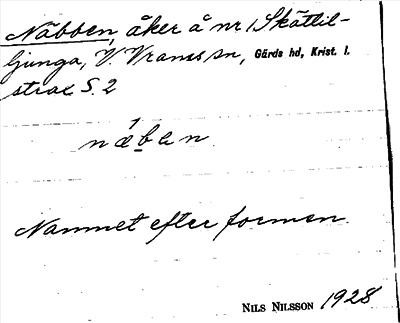 Näbben, åker å nr 1 Skättil-
ljunga, V. Vrams sn, Gärds hd, Krist. l.
strax S. 2
næban
Namnet efter formen.
NILS NILSSON 1928